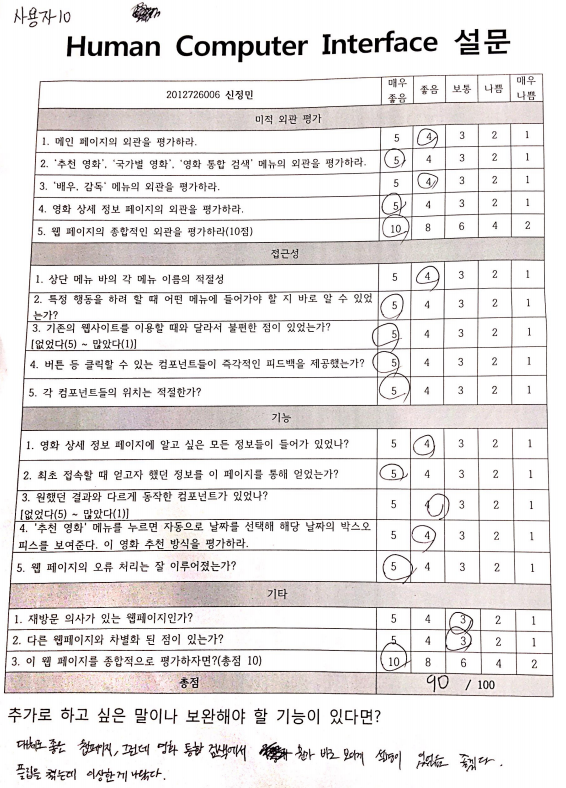 사용자10
Human Computer Interface 설문
2012726006 신정민 매우 좋음 좋음 보통 나쁨 매우 나쁨
미적 외관 평가
1. 메인 페이지의 외관을 평가하라. 5 4 3 2 1
2. '추천 영화', '국가별 영화', '영화 통합 검색' 메뉴의 외관을 평가하라. 5 4 3 2 1
3. '배우, 감독' 메뉴의 외관을 평가하라. 5 4 3 2 1
4. 영화 상세 정보 페이지의 외관을 평가하라. 5 4 3 2 1
5. 웹 페이지의 종합적인 외관을 평가하라(10점) 10 8 6 4 2
접근성
1. 상단 메뉴 바의 각 메뉴 이름의 적절성 5 4 3 2 1
2. 특정 행동을 하려 할 때 어떤 메뉴에 들어가야 할 지 바로 알 수 있었
는가? 5 4 3 2 1
3. 기존의 웹사이트를 이용할 때와 달라서 불편한 점이 있었는가?
[없었다(5) ~ 많았다(1)] 5 4 3 2 1
4. 버튼 등 클릭할 수 있는 컴포넌트들이 즉각적인 피드백을 제공했는가? 5 4 3 2 1
5. 각 컴포넌트들의 위치는 적절한가? 5 4 3 2 1
기능
1. 영화 상세 정보 페이지에 알고 싶은 모든 정보들이 들어가 있었나? 5 4 3 2 1
2. 최초 접속할 때 얻고자 했던 정보를 이 페이지를 통해 얻었는가? 5 4 3 2 1
3. 원했던 결과와 다르게 동작한 컴포넌트가 있었나?
[없었다(5) ~ 많았다(1)] 5 4 3 2 1
4. '추천 영화' 메뉴를 누르면 자동으로 날짜를 선택해 해당 날짜의 박스오
피스를 보여준다. 이 영화 추천 방식을 평가하라. 5 4 3 2 1
5. 웹 페이지의 오류 처리는 잘 이루어졌는가? 5 4 3 2 1
기타
1. 재방문 의사가 있는 웹페이지인가? 5 4 3 2 1
2. 다른 웹페이지와 차별화 된 점이 있는가? 5 4 3 2 1
3. 이 웹 페이지를 종합적으로 평가하자면?(총점 10) 10 8 6 4 2
총점 90 / 100
추가로 하고 싶은 말이나 보완해야 할 기능이 있다면?
대체로 좋은 웹페이지, 그런데 영화 통합 검색에서 뭔가 바로 보이게 설명이 있었으면 좋겠다.
이상한게 나왔다.